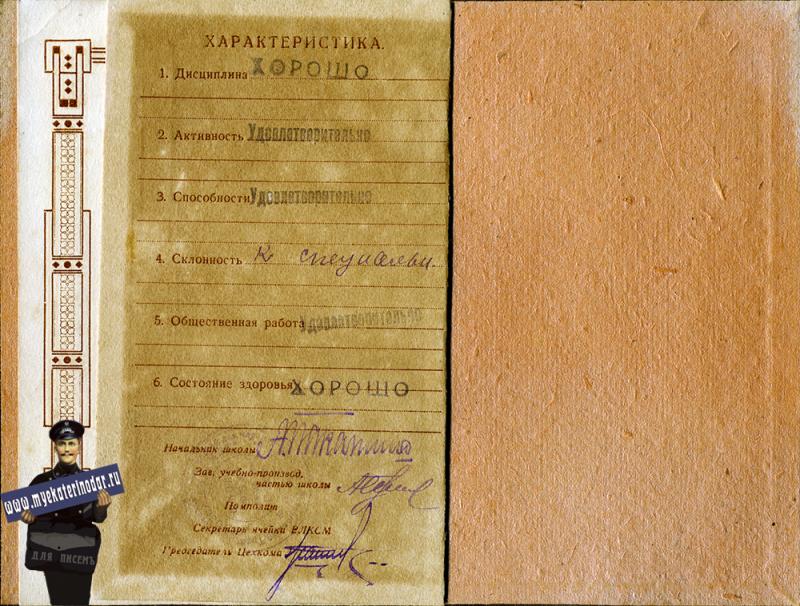 ХАРАКТЕРИСТИКА.
1. Дисциплина ХОРОШО
2. Активность Удовлетворительно
3. Способности Удовлетворительно
4. Склонность к специальн.
5. Общественная работа Удовлетворительно
6. Состояние здоровья ХОРОШО
Начальник школы
Зав. учебно-производ.
частью школы
Помполит
Секретарь ячейки ВЛКСМ
Председатель Цехкома
www.myekaterinodar.ru
ДЛЯ ПИСЕМЪ